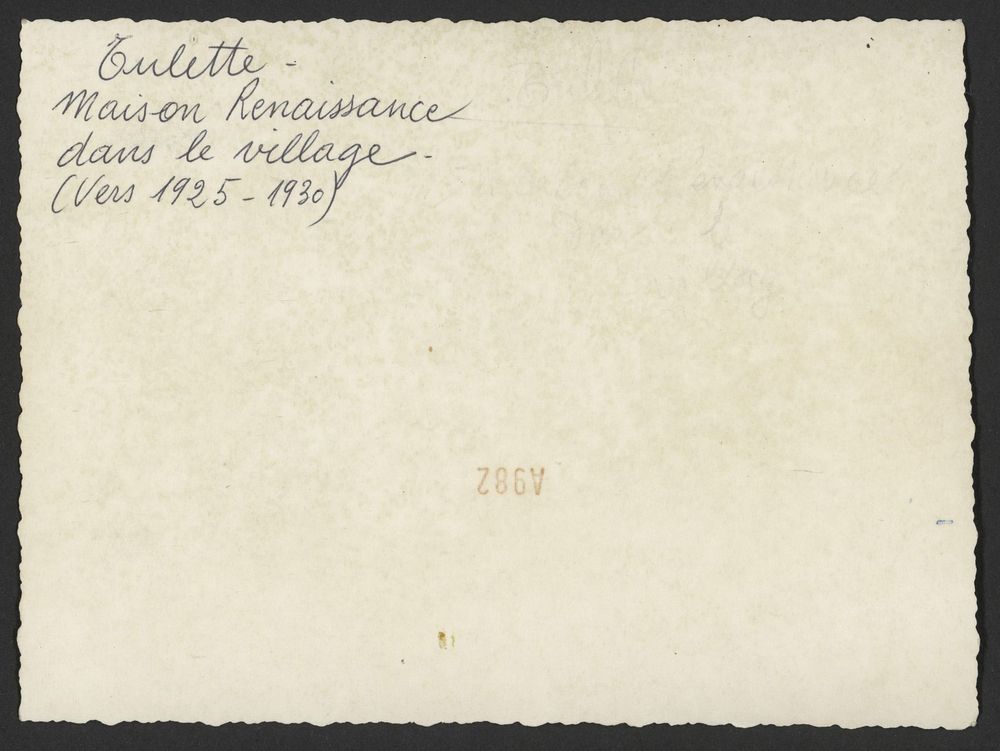 Tulette -
Maison Renaissance
dans le village -
(Vers 1925 - 1930)
A982